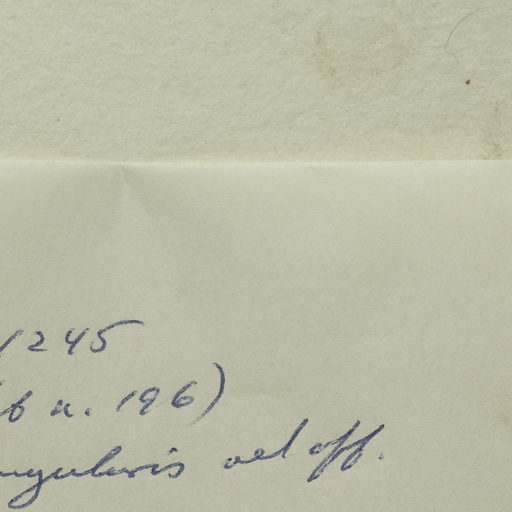 1245
b n. 196)
ngularis vel aff.